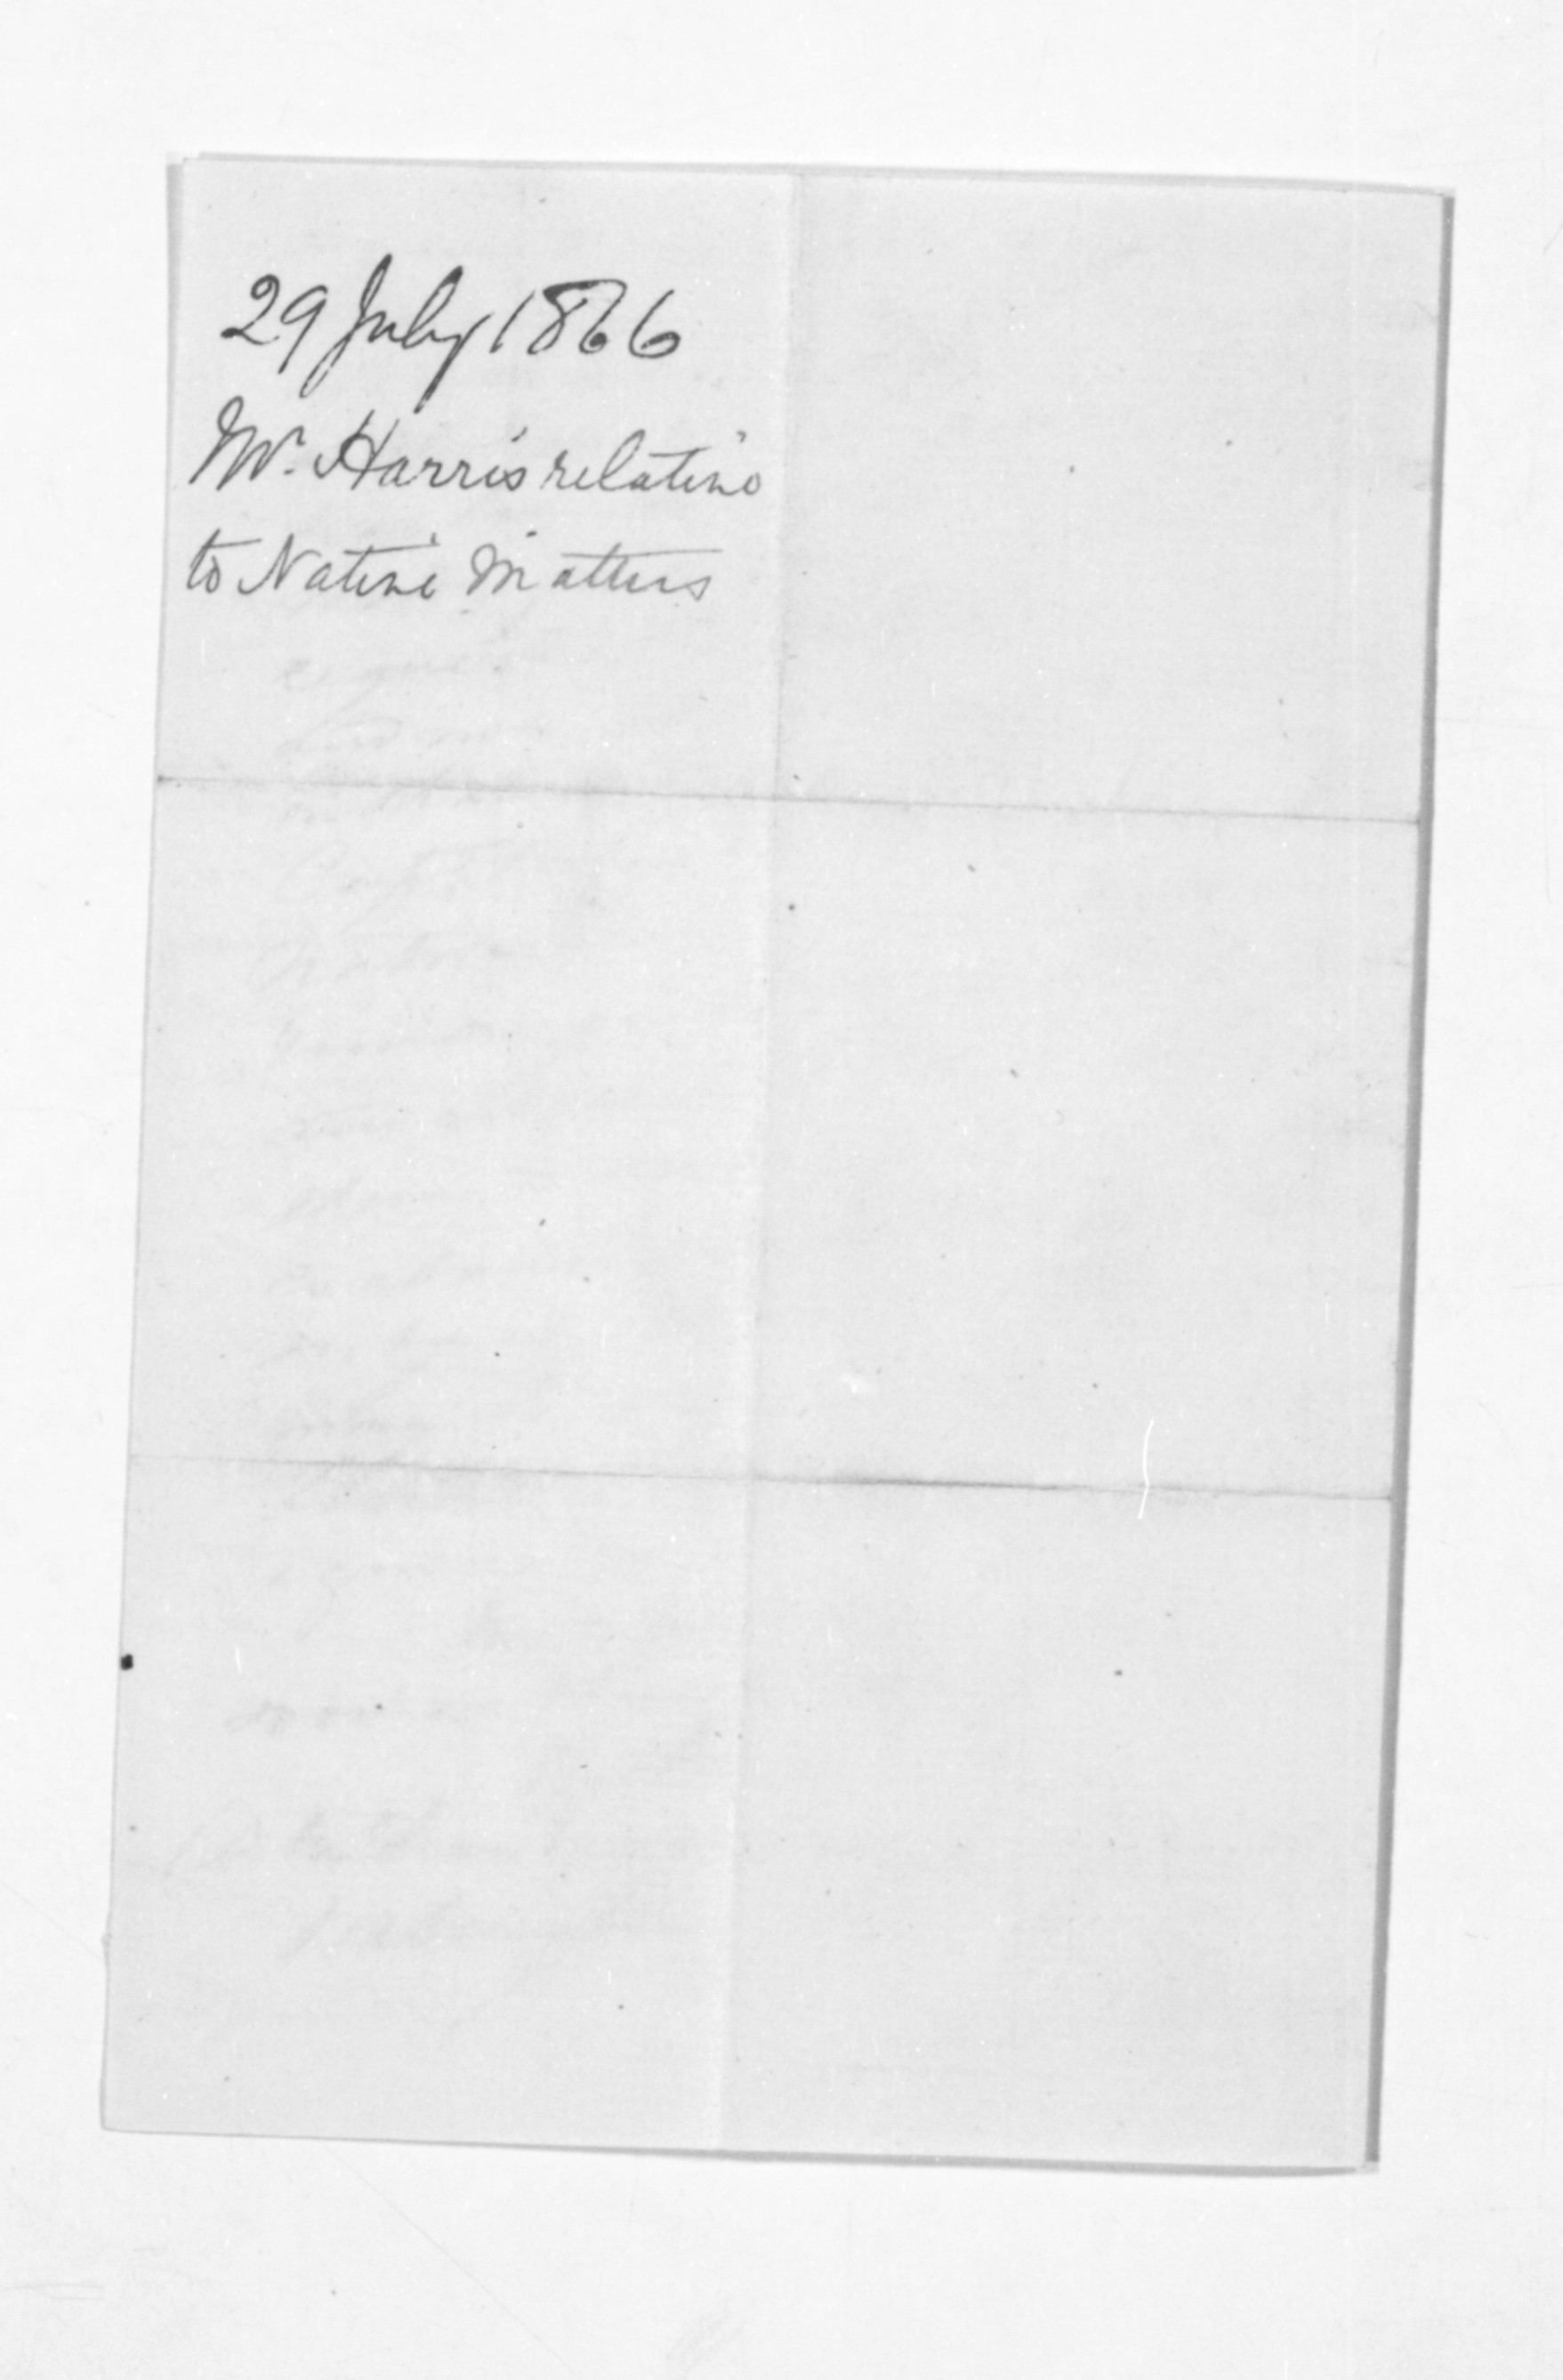 29 July 1866
Mr. Harris relative
to Native Matters